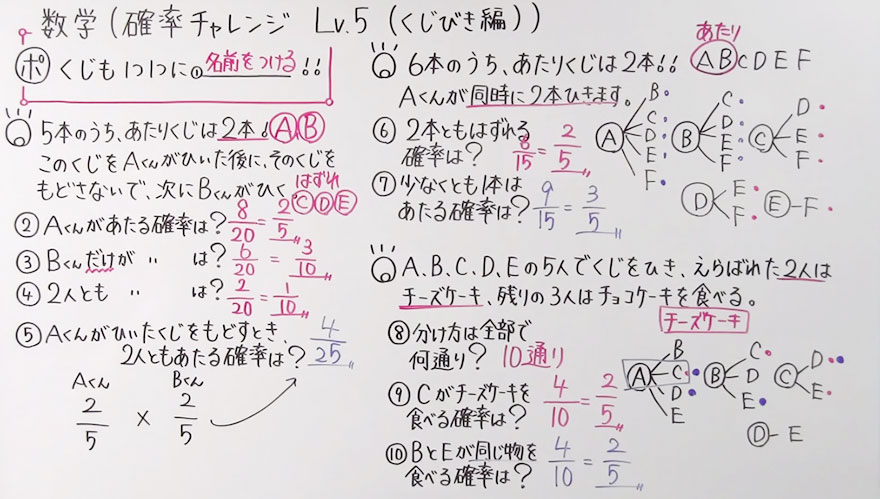 数学(確率チャレンジ Lv.5 (くじびき編))
ポ くじも1つ1つに① 名前をつける!!
5本のうち、あたりくじは2本! A B
このくじをAくんがひいた後に、そのくじを
もどさないで、次にBくんがひく。
はずれ
C D E
② Aくんがあたる確率は? 8/20 = 2/5
③ Bくんだけが 〃 は? 6/20 = 3/10
④ 2人とも 〃 は? 2/20 = 1/10
⑤ Aくんがひいたくじをもどすとき、
2人ともあたる確率は? 4/25
Aくん Bくん
2/5 × 2/5
6本のうち、あたりくじは2本!!
あたり
A B C D E F
Aくんが同時に2本ひきます。
⑥ 2本ともはずれる
確率は? 8/15 = 2/5
⑦ 少なくとも1本は
あたる確率は? 9/15 = 3/5
A B C D E F
B C D E F
C D E F
D E F
E-F
A、B、C、D、Eの5人でくじをひき、えらばれた2人は
チーズケーキ、残りの3人はチョコケーキを食べる。
⑧ 分け方は全部で
何通り? 10通り
⑨ Cがチーズケーキを
食べる確率は? 4/10 = 2/5
⑩ BとEが同じ物を
食べる確率は? 4/10 = 2/5
チーズケーキ
A B C D E
B C D E
C D E
D-E